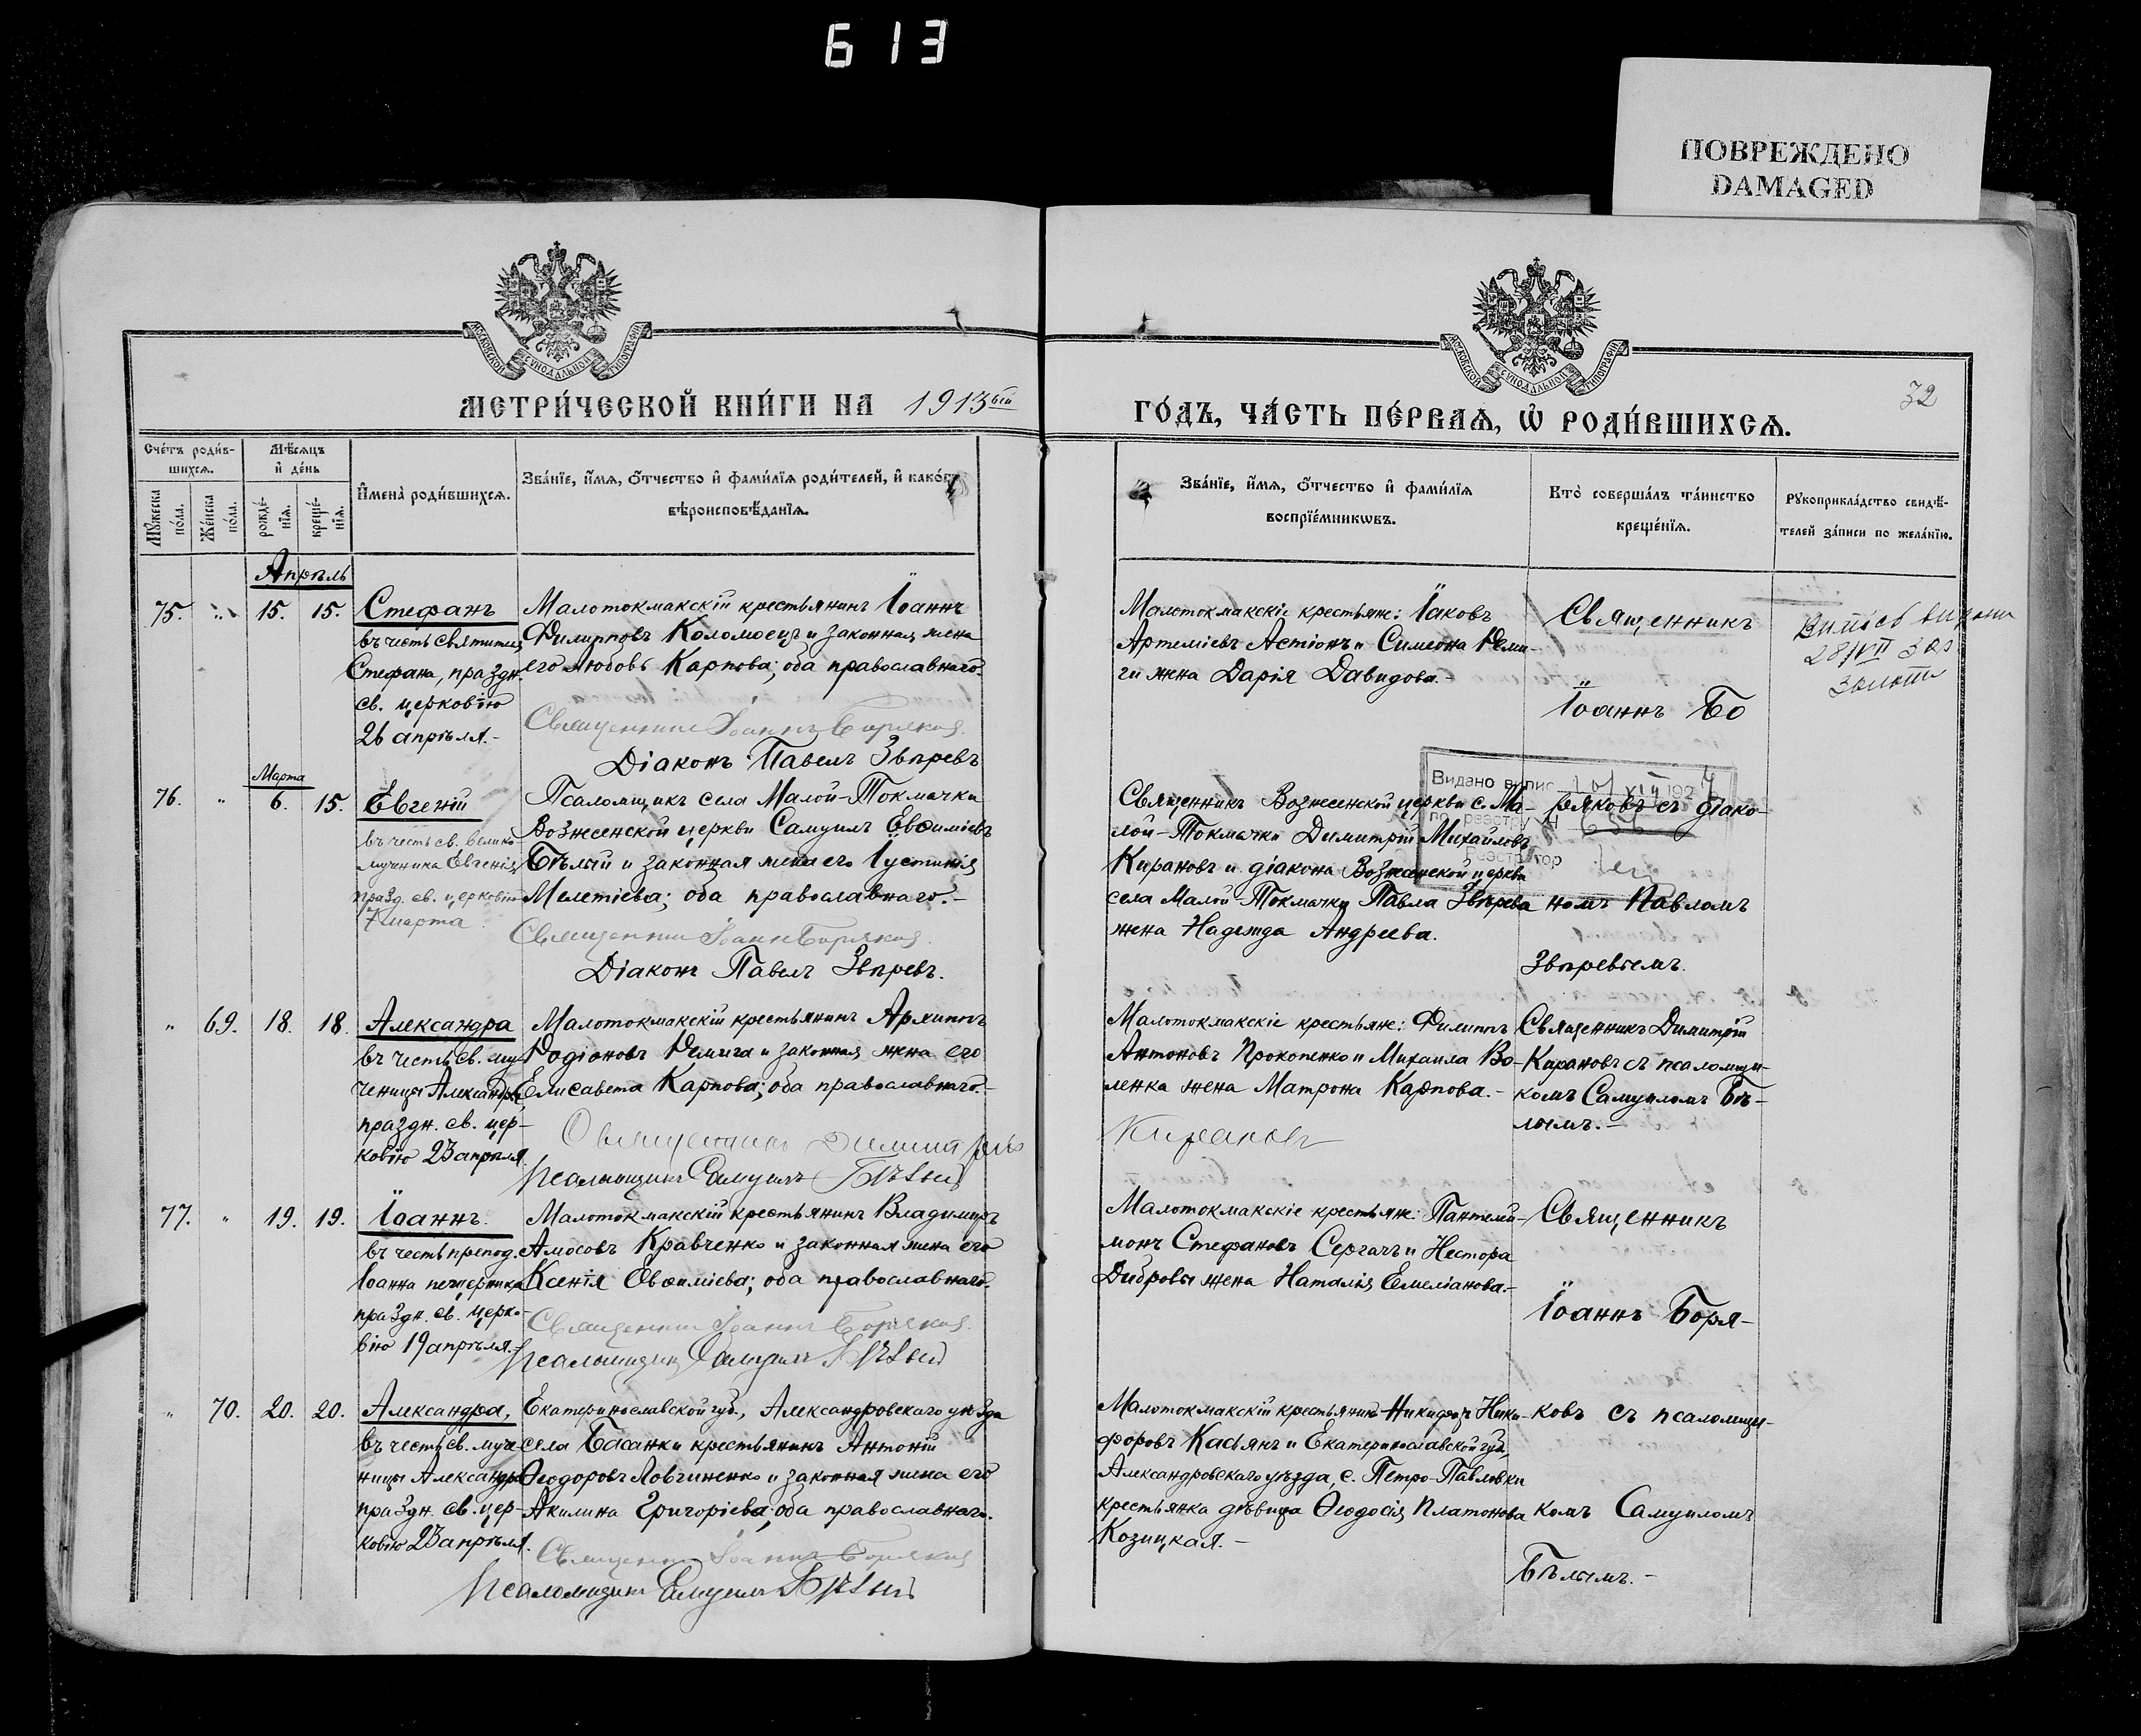 613
ПОВРЕЖДЕНО
DAMAGED
МОСКОВСКОЙ СѴНОДАЛЬНОЙ ТИПОГРАФІИ
МОСКОВСКОЙ СѴНОДАЛЬНОЙ ТИПОГРАФІИ
МЕТРИ́ЧЕСКОЙ КНИ́ГИ НА 1913ый
ГО́ДЪ, ЧА́СТЬ ПЕ́РВАѦ, Ѡ҆ РОДИ́ВШИХСѦ.
32
Сче́тъ роди́в-
шихсѧ.
Мѣ́сѧцъ
и҆ де́нь
Мꙋ́жеска
по́ла.
Же́нска
по́ла.
рожде́-
нїѧ.
креще́-
нїѧ.
И҆мена̀ роди́вшихсѧ.
Зва́нїе, и҆́мѧ, ѻ҆́тчество и҆ фами́лїѧ роди́телей, и҆ како́гѡ
вѣроисповѣ́данїѧ.
Зва́нїе, и҆́мѧ, ѻ҆́тчество и҆ фами́лїѧ
воспрїе́мникѡвъ.
Кто̀ соверша́лъ та́инство
креще́нїѧ.
Рꙋкоприкла́дство свидѣ́-
телей за́писи по жела́нїю.
Апрѣль
75. " 15. 15. Стефанъ
въ честь святителя
Стефана, праздн.
св. церковію
26 апрѣля.-
Малотокмакскій крестьянинъ Іоаннъ
Филипповъ Коломоецъ и законная жена
его Любовь Карпова; оба православнаго.
Священникъ Іоаннъ Боряковъ
Діаконъ Павелъ Звѣревъ
Малотокмакскіе крестьяне: Іаковъ
Артеміевъ Астіонъ и Симеона Реми-
ги жена Дарія Давидова.-
Священникъ
Іоаннъ Бо
28/VII
Марта
76. " 6. 15. Евгеній
въ честь св. велико-
мученика Евгенія,
празд. св. церковію
7 марта
Псаломщикъ села Малой-Токмачки
Вознесенской церкви Самуилъ Евѳиміевъ
Бѣлый и законная жена его Іустинія
Мелетіева; оба православнаго.-
Священникъ Іоаннъ Боряковъ
Діаконъ Павелъ Звѣревъ.
Священникъ Вознесенской церкви с. Ма-
лой-Токмачки Димитрій Михайловъ
Кирановъ и діакона Вознесенской церкви
села Малой Токмачки Павла Звѣрева
жена Надежда Андреева.
Видано випис
VIII 192
по реєстру №
Реєстратор
ряковъ съ діако-
номъ Павломъ
Звѣревымъ.
" 69. 18. 18. Александра
въ честь св. му-
ченицы Александры,
праздн. св. цер-
ковію 23 апрѣля.
Малотокмакскій крестьянинъ Архиппъ
Родіоновъ Ремига и законная жена его
Елисавета Карпова; оба православнаго.-
Священникъ Димитрій
Псаломщикъ Самуилъ Бѣлый
Малотокмакскіе крестьяне: Филиппъ
Антоновъ Прокопенко и Михаила Во-
ленка жена Матрона Карпова.-
Кирановъ
Священникъ Димитрій
Кирановъ съ псаломщи-
комъ Самуиломъ Бѣ-
лымъ.-
77. " 19. 19. Іоаннъ.
въ честь препод.
Іоанна пещерника
праздн. св. церко-
вію 19 апрѣля.-
Малотокмакскій крестьянинъ Владимиръ
Амосовъ Кравченко и законная жена его
Ксенія Евѳиміева; оба православнаго.
Священникъ Іоаннъ Боряковъ
Псаломщикъ Самуилъ Бѣлый
Малотокмакскіе крестьяне: Пантелей-
монъ Стефановъ Сергачъ и Нестора
Дибровы жена Наталія Емеліанова.-
Священникъ
Іоаннъ Боря-
" 70. 20. 20. Александра,
въ честь св. муче-
ницы Александры
праздн. св. цер-
ковію 23 апрѣля.
Екатеринославской губ., Александровскаго уѣзда
села Басанки крестьянинъ Антоній
Ѳеодоровъ Ловчиненко и законная жена его
Акилина Григоріева; оба православнаго.
Священникъ Іоаннъ Боряковъ
Псаломщикъ Самуилъ Бѣлый
Малотокмакскій крестьянинъ Никифоръ Ники-
форовъ Касьянъ и Екатеринославской губ.,
Александровскаго уѣзда, с. Петро-Павловки
крестьянка дѣвица Ѳеодосія Платонова
Козицкая.-
ковъ съ псаломщи-
комъ Самуиломъ
Бѣлымъ.-